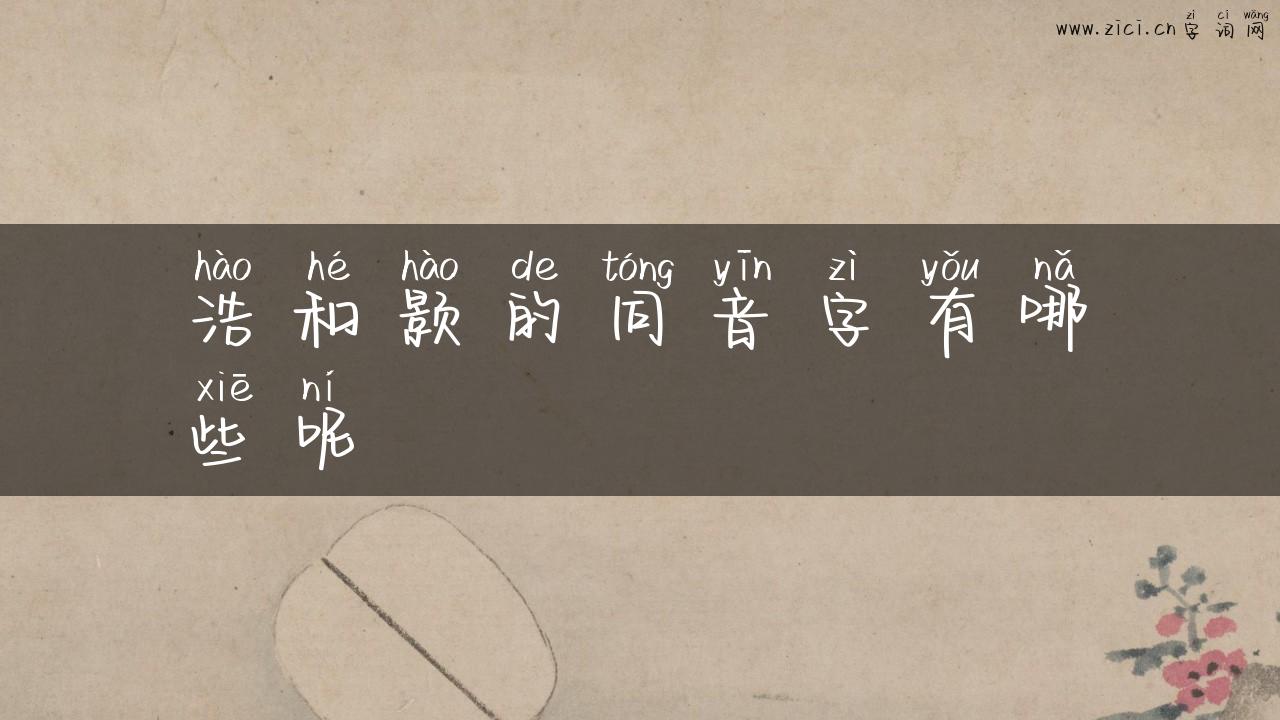 zì cí wǎng
www.zici.cn 字 词 网
hào hé hào de tóng yīn zì yǒu nǎ
浩 和 颢 的 同 音 字 有 哪
xiē ní
些 呢